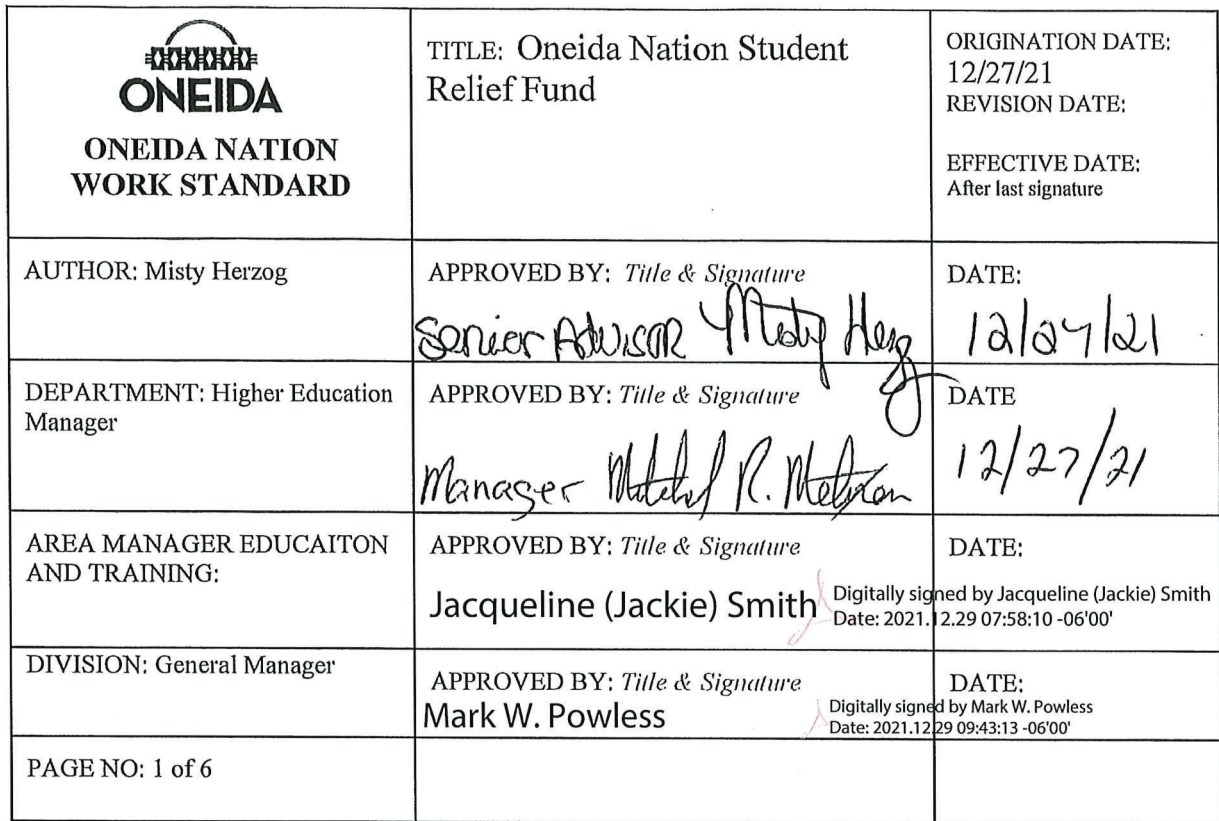 ONEIDA
ONEIDA NATION
WORK STANDARD
TITLE: Oneida Nation Student
Relief Fund
ORIGINATION DATE:
12/27/21
REVISION DATE:
EFFECTIVE DATE:
After last signature
AUTHOR: Misty Herzog
APPROVED BY: Title & Signature
Senior Advisor Misty Herzog
DATE:
12/27/21
DEPARTMENT: Higher Education
Manager
APPROVED BY: Title & Signature
Manager Mitchel R. Metoxen
DATE
12/27/21
AREA MANAGER EDUCAITON
AND TRAINING:
APPROVED BY: Title & Signature
Jacqueline (Jackie) Smith
DATE:
Digitally signed by Jacqueline (Jackie) Smith
Date: 2021.12.29 07:58:10 -06'00'
DIVISION: General Manager
APPROVED BY: Title & Signature
Mark W. Powless
DATE:
Digitally signed by Mark W. Powless
Date: 2021.12.29 09:43:13 -06'00'
PAGE NO: 1 of 6